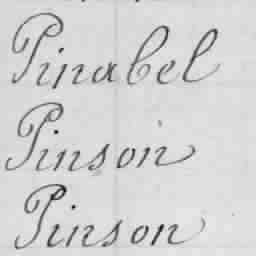 Pinabel
Pinson
Pinson